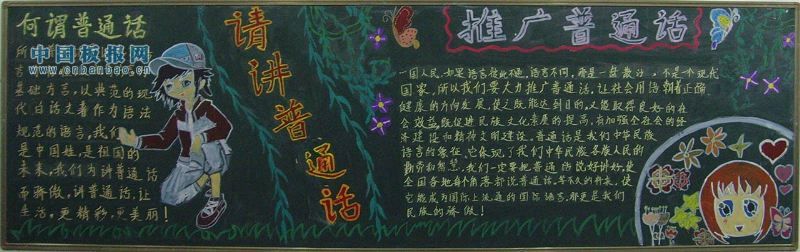 何谓普通话
中国板报网
www.cnbanbao.cn
所
言
基础方言，以典范的现
代白话文著作为语法
规范的语言，我们
是中国娃，是祖国的
未来，我们为讲普通话
而骄傲，讲普通话，让
生活，更精彩，更美丽！
请讲普通话
推广普通话
一国人民，如果语言彼此不通，语言不同，而是一盘散沙，不是一个现代
国家，所以我们要大力推广普通话，让社会用语朝着正确
健康的方向发展，使之既能达到目的，又能取得良好的社
会效益，既促进民族文化素质的提高，有加强全社会的经
济建设和精神文明建设。普通话是我们中华民族
语言的象征，它体现了我们中华民族各族人民的
勤劳和智慧，我们一定要把普通话说好讲好，使
全国各地每个角落都说普通话，等不久的将来，使
它能成为国际上流通的国际语言，那更是我们
民族的骄傲！